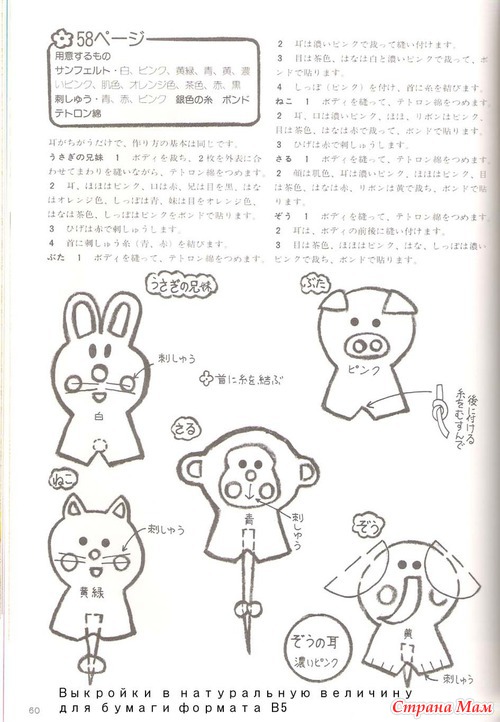 58ページ
用意するもの
サンフェルト・白、ピンク、黄緑、青、黄、濃
いピンク、肌色、オレンジ色、茶色、赤、黒
刺しゅう・青、赤、ピンク 銀色の糸 ボンド
テトロン綿
耳がちがうだけで、作り方の基本は同じです。
うさぎの兄妹 1 ボディを裁ち、2枚を外表に合
わせてまわりを縫いながら、テトロン綿をつめます。
2 耳、ほほはピンク、口は赤、兄は目を黒、はな
はオレンジ色、しっぽは青、妹は目をオレンジ色、
はなは茶色、しっぽはピンクをボンドで貼ります。
3 ひげは赤で刺しゅうします。
4 首に刺しゅう糸（青、赤）を結びます。
ぶた 1 ボディを縫って、テトロン綿をつめます。
2 耳は濃いピンクで裁って縫い付けます。
3 目は茶色、はなは白と濃いピンクで裁って、ボ
ンドで貼ります。
4 しっぽ（ピンク）を付け、首に糸を結びます。
ねこ 1 ボディを縫って、テトロン綿をつめます。
2 耳、口は濃いピンク、ほほ、リボンはピンク、
目は茶色、はなは赤で裁って、ボンドで貼ります。
3 ひげは赤で刺しゅうします。
さる 1 ボディを縫って、テトロン綿をつめます。
2 顔は肌色、耳は濃いピンク、ほほはピンク、目
は茶色、はなは赤、リボンは黄で裁ち、ボンドで貼
ります。
ぞう 1 ボディを縫って、テトロン綿をつめます。
2 耳は、ボディの前後に縫い付けます。
3 目は茶色、ほほはピンク、はな、しっぽは濃い
ピンクで裁ち、ボンドで貼ります。
うさぎの兄妹
ぶた
刺しゅう
首に糸を結ぶ
白
ピンク
後に付ける
糸をむすんで
さる
ねこ
刺しゅう
黄緑
青
刺しゅう
ぞう
黄
刺しゅう
ぞうの耳
濃いピンク
60
Выкройки в натуральную величину
для бумаги формата B5
Страна Мам